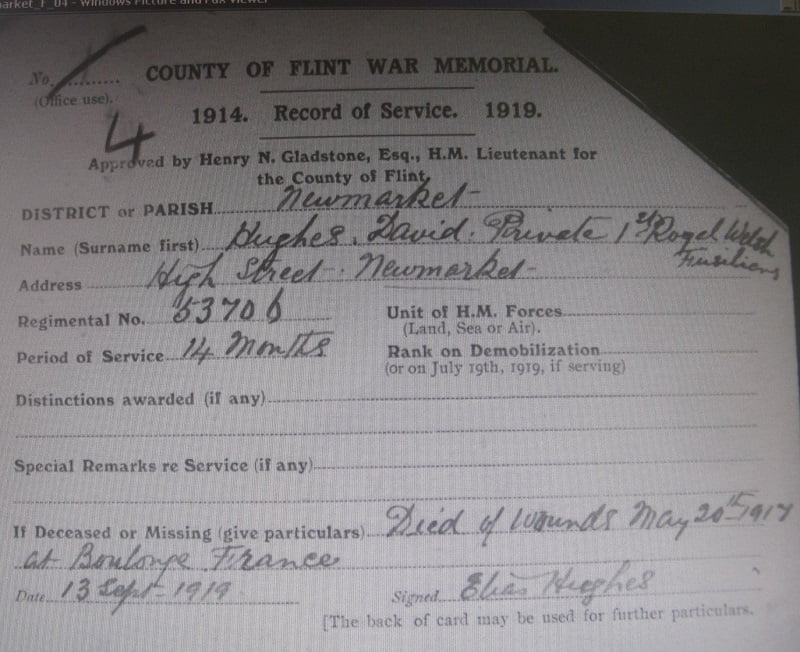 arket_F_04 - Windows Picture and Fax Viewer
No.
(Office use).
4
COUNTY OF FLINT WAR MEMORIAL.
1914. Record of Service. 1919.
Approved by Henry N. Gladstone, Esq., H.M. Lieutenant for
the County of Flint.
DISTRICT or PARISH Newmarket
Name (Surname first) Hughes. David. Private 1st Royal Welsh
Fusiliers
Address High Street. Newmarket
Regimental No. 53706
Unit of H.M. Forces
(Land, Sea or Air).
Period of Service 14 Months
Rank on Demobilization
(or on July 19th, 1919, if serving)
Distinctions awarded (if any)
Special Remarks re Service (if any)
If Deceased or Missing (give particulars) Died of Wounds May 20th 1917
at Boulonge France
Date 13 Sept 1919
Signed Elias Hughes
[The back of card may be used for further particulars.